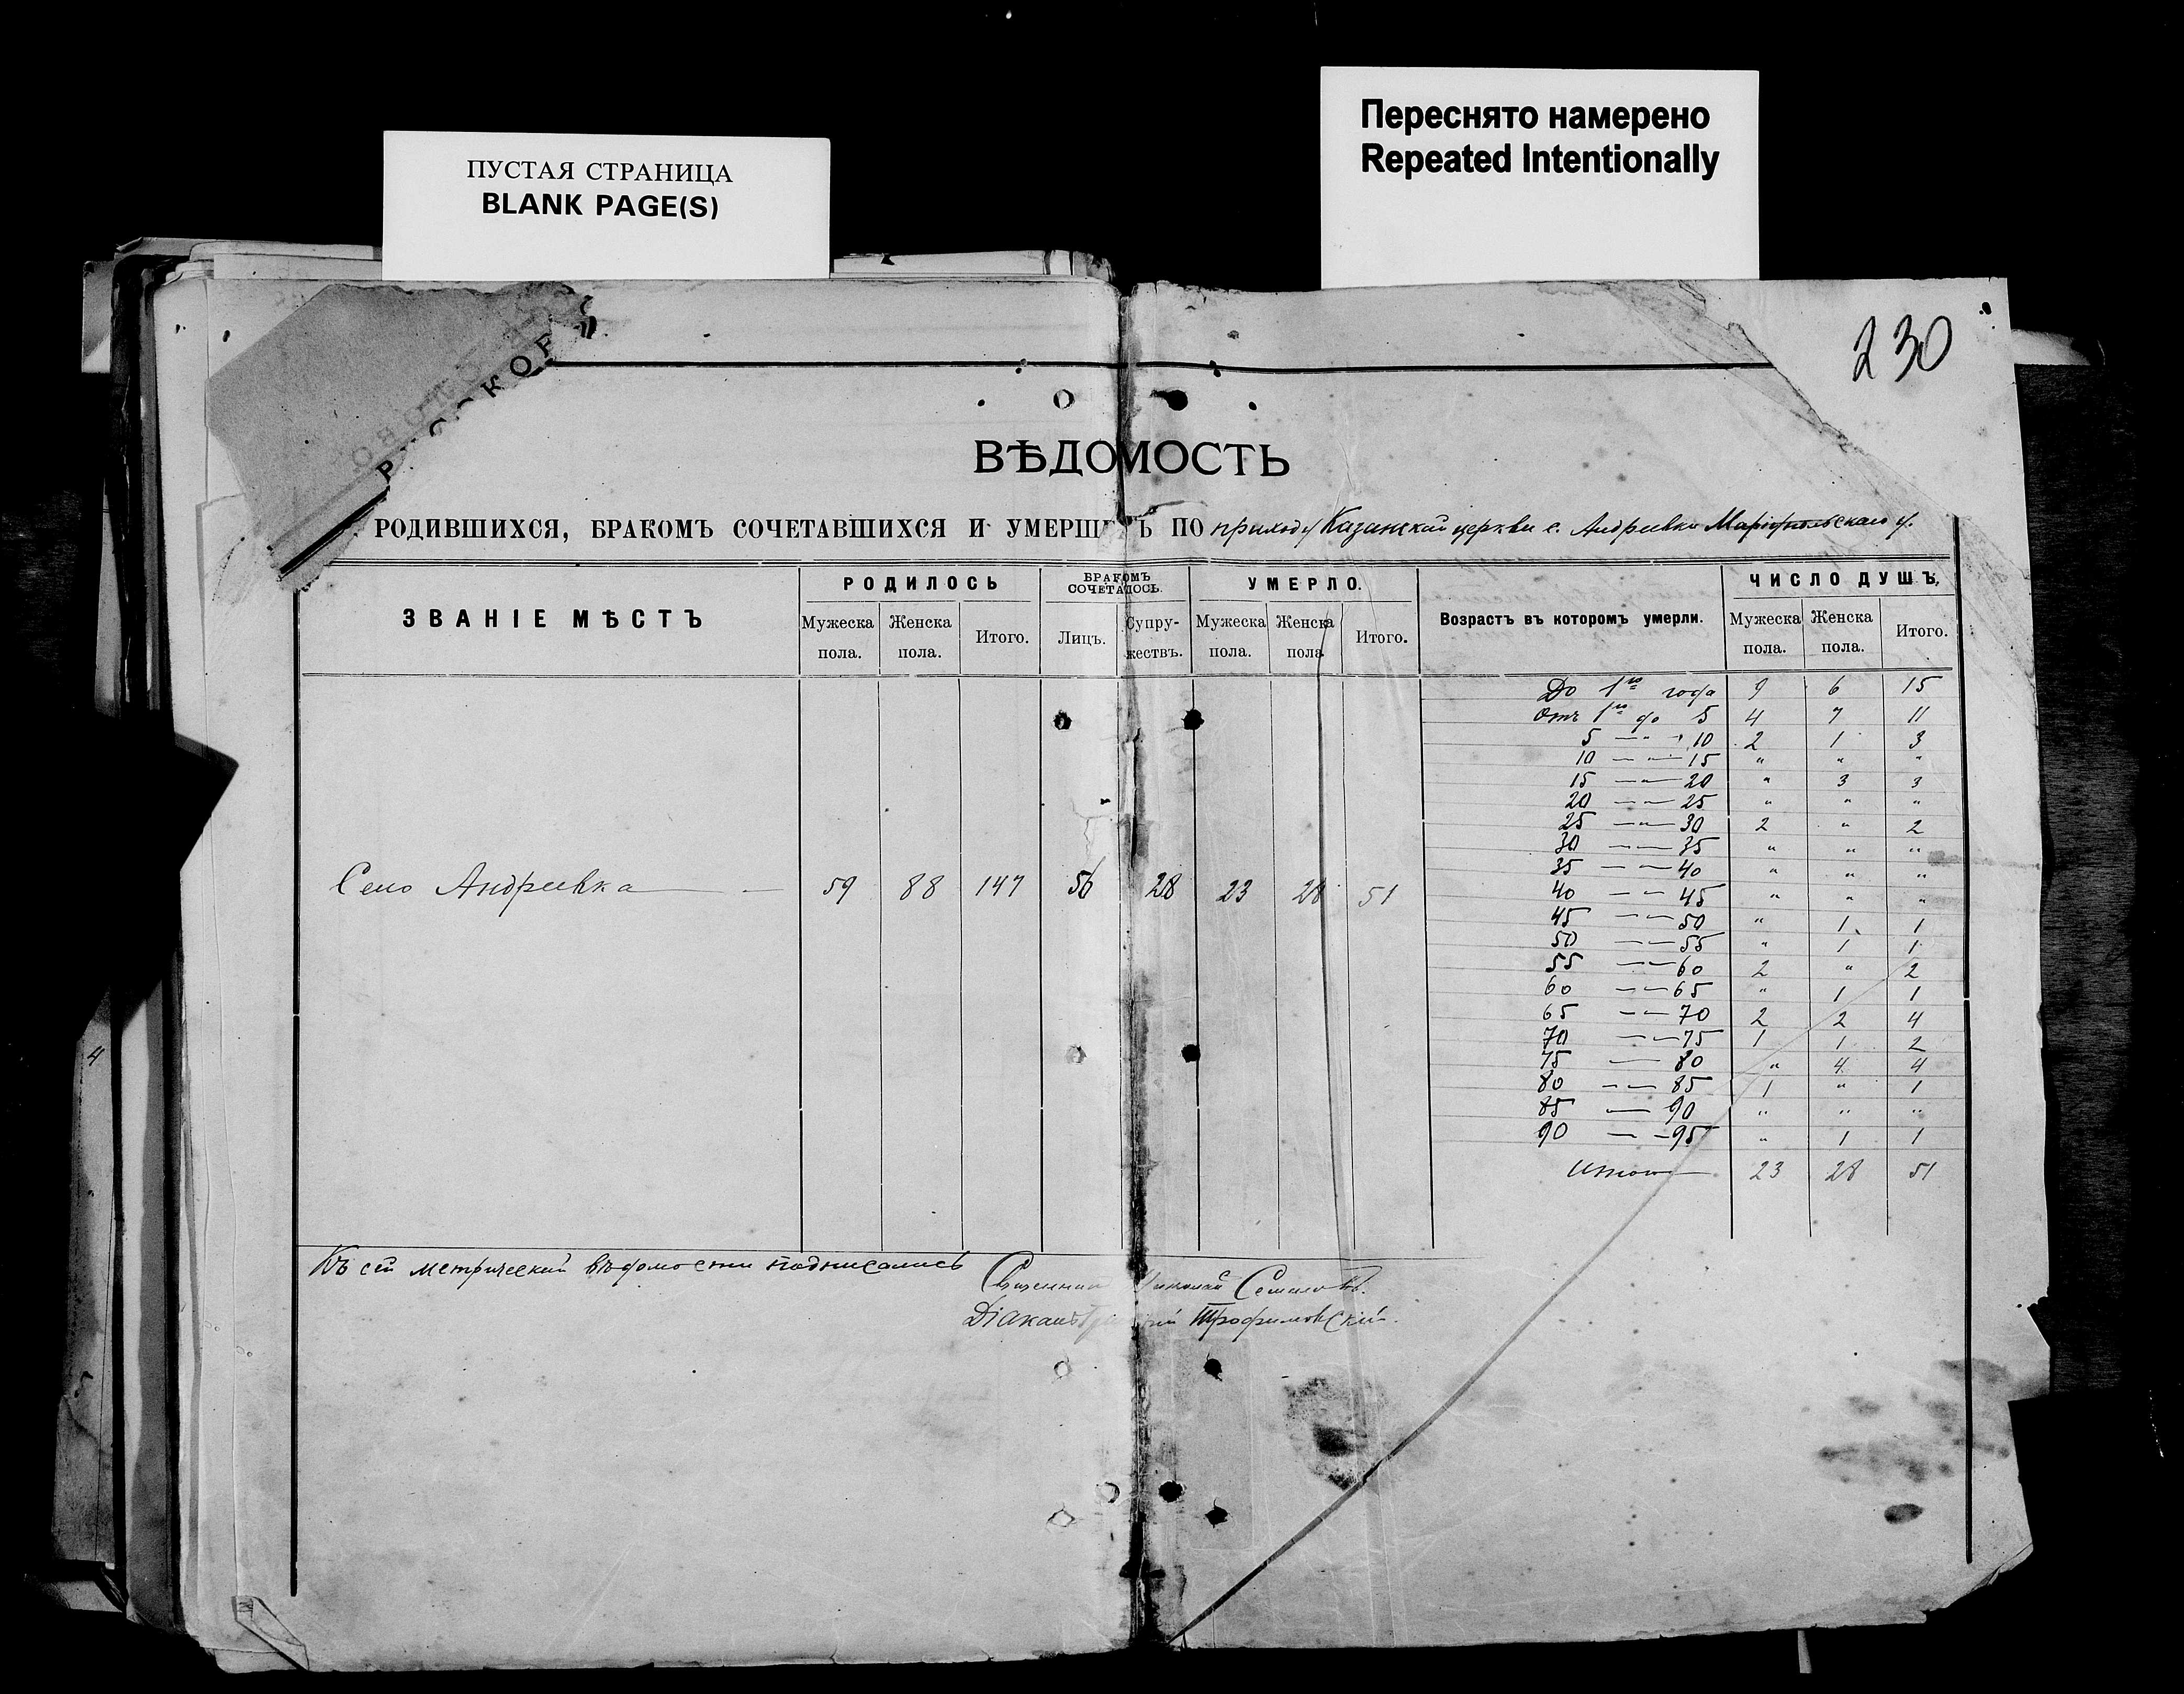 ПУСТАЯ СТРАНИЦА
BLANK PAGE(S)
Переснято намерено
Repeated Intentionally
230
ВѢДОМОСТЬ
РОДИВШИХСЯ, БРАКОМЪ СОЧЕТАВШИХСЯ И УМЕРШ Ъ ПО приходу Казанской церкви с. Андреевки Маріупольскаго у.
ЗВАНІЕ МѢСТЪ РОДИЛОСЬ БРАКОМЪ СОЧЕТАЛОСЬ. УМЕРЛО. Возрастъ въ которомъ умерли. ЧИСЛО ДУШЪ,
Мужеска пола. Женска пола. Итого. Лицъ. Супружествъ. Мужеска пола. Женска пола Итого. Мужеска пола. Женска пола. Итого.
До 1го года 9 6 15
Отъ 1го до 5 4 7 11
5 — " — 10 2 1 3
10 — " — 15 " " "
15 — " — 20 " 3 3
20 — " — 25 " " "
25 — " — 30 2 " 2
30 — — 35 " " "
35 — — 40 " " "
Село Андреевка — 59 88 147 56 28 23 28 51
40 — — 45 " " "
45 — — 50 " 1 1
50 — — 55 " 1 1
55 — — 60 2 " 2
60 — — 65 " 1 1
65 — — 70 2 2 4
70 — — 75 1 1 2
75 — 80 " 4 4
80 — — 85 1 " 1
85 — 90 " " "
90 — — 95 " 1 1
Итого 23 28 51
Къ сей метрической вѣдомости подписались
Священник Николай
Діаконъ Трофимовскій.
4